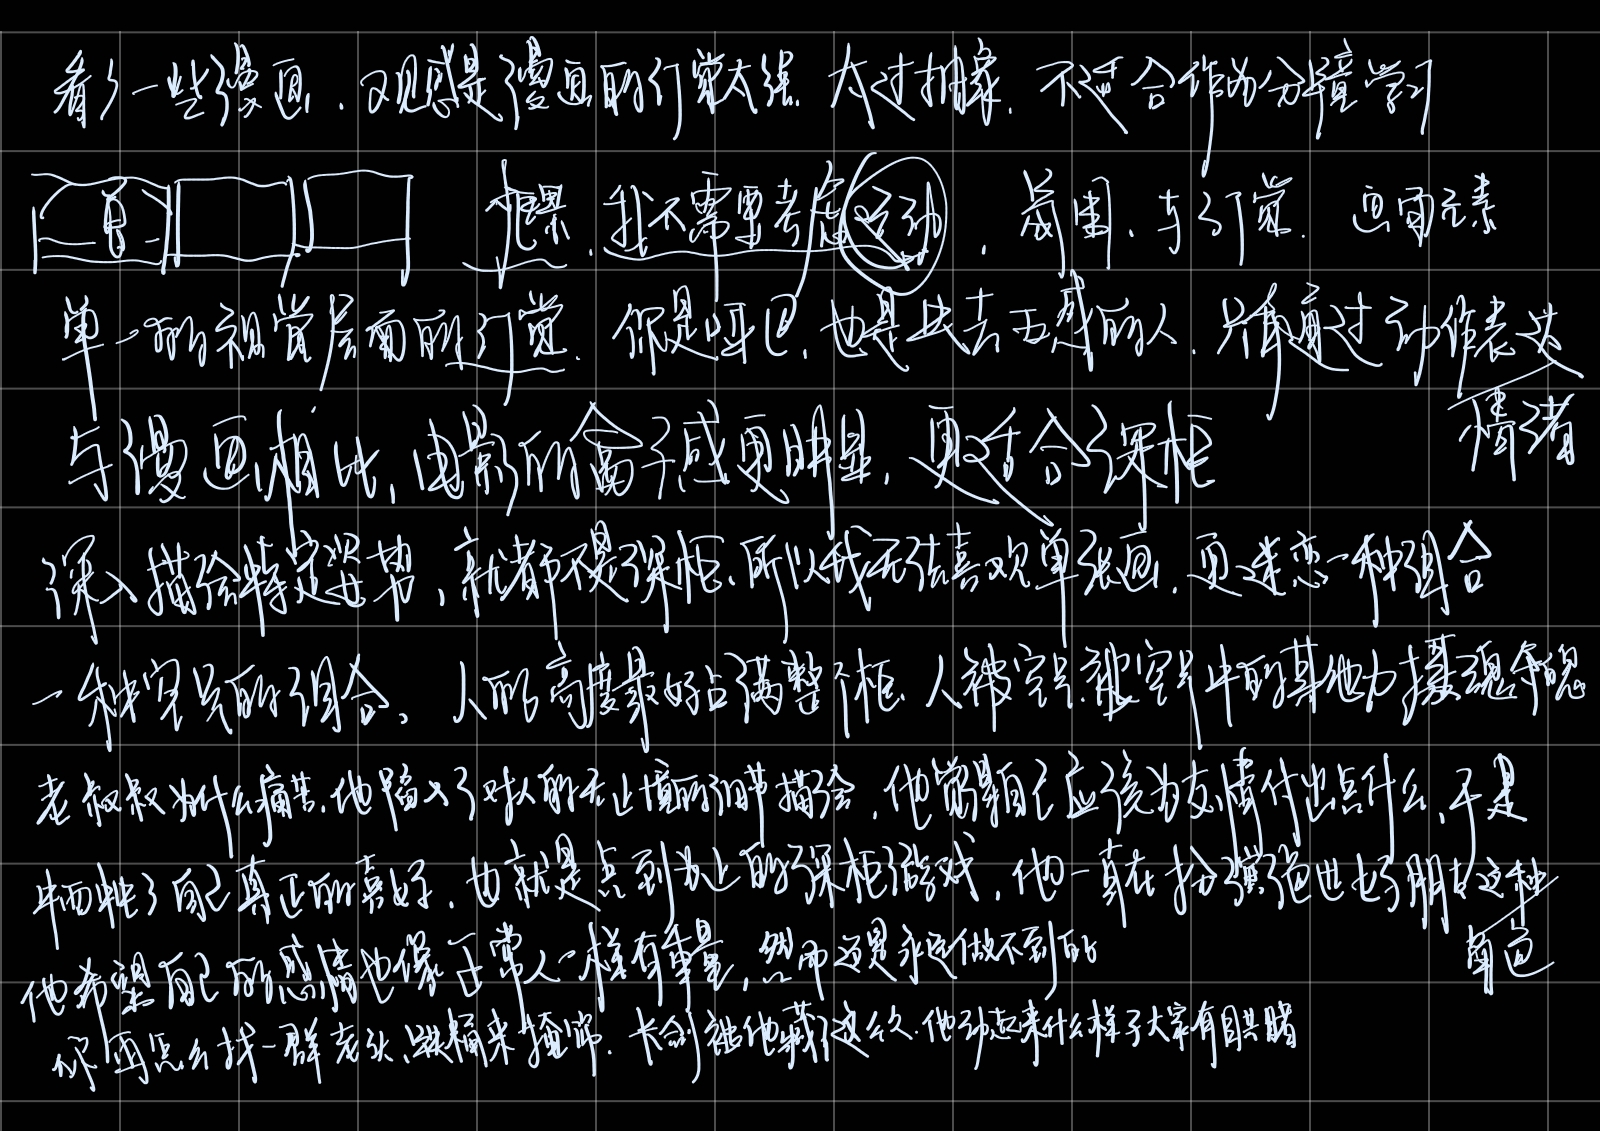 看了一些漫画，观感是漫画的幻觉太强 太过抽象，不适合作为分镜学习
框架，我不需要考虑运动，氛围，与幻觉 画面元素
单一的视觉层面的幻觉 你是哑巴，也是失去五感的人，只能通过动作表达
情绪
与漫画相比，电影的盒子感更明显，更适合深柜
深入描绘特定，就都不是深柜，所以我无法喜欢单张画，更迷恋一种组合
一种的组合，人的高度最好占满整个框 人被，被中的其他力摄魂夺魄
老叔叔为什么痛苦，他陷入了对人的无止境的细节描绘，他觉得自己应该为友情付出点什么，于是
牺牲了自己真正的喜好，也就是点到为止的深柜游戏，他一直在扮演绝世好朋友这种
角色
他希望自己的感情也像正常人一样有重量，然而这是永远做不到的
你再怎么找一群老头、铁桶来掩饰，长剑被他藏了这么久，他动起来什么样子大家有目共睹